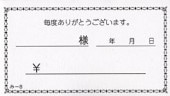 毎度ありがとうございます。
様 年 月 日
¥
み-8